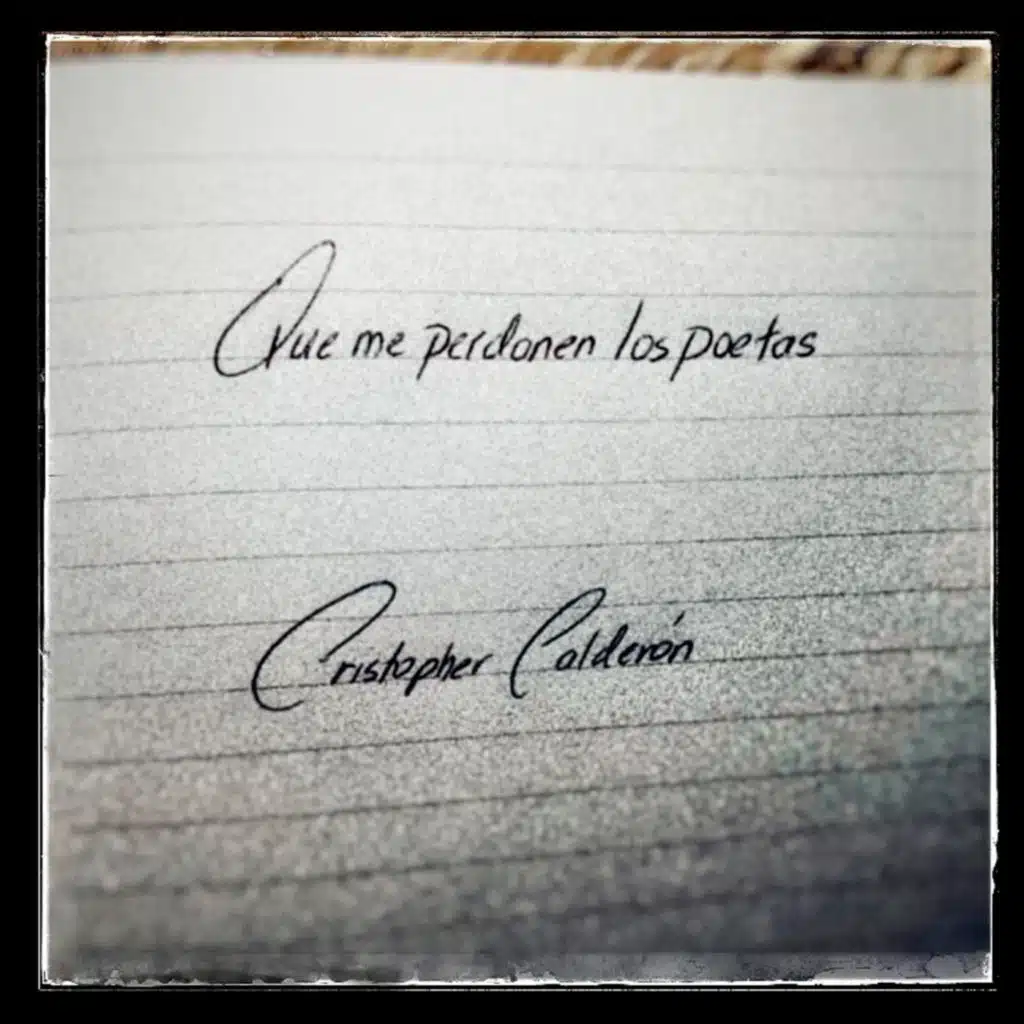 Que me perdonen los poetas
Cristopher Calderón